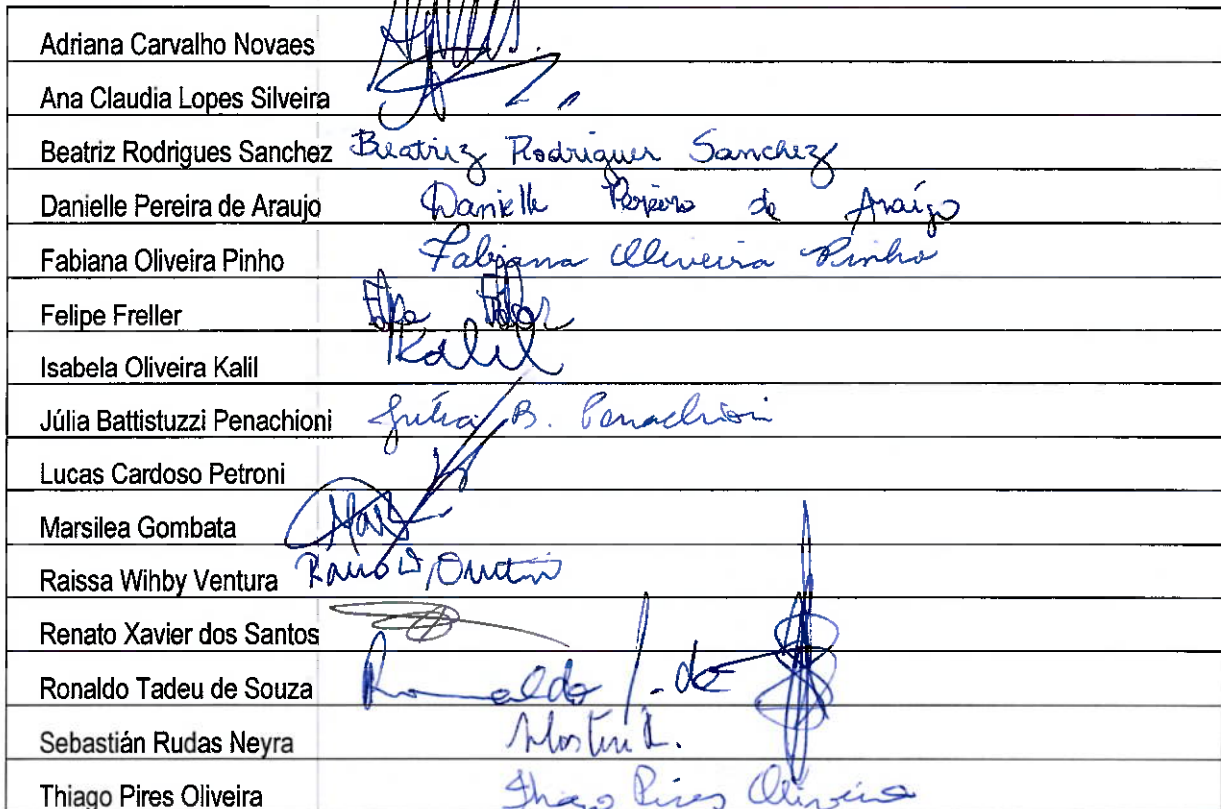 Adriana Carvalho Novaes
Ana Claudia Lopes Silveira
Beatriz Rodrigues Sanchez Beatriz Rodrigues Sanchez
Danielle Pereira de Araujo Danielle Pereira de Araújo
Fabiana Oliveira Pinho Fabiana Oliveira Pinho
Felipe Freller
Isabela Oliveira Kalil Kalil
Júlia Battistuzzi Penachioni Júlia B. Penachioni
Lucas Cardoso Petroni
Marsilea Gombata
Raissa Wihby Ventura
Renato Xavier dos Santos
Ronaldo Tadeu de Souza Ronaldo T. de
Sebastián Rudas Neyra
Thiago Pires Oliveira Thiago Pires Oliveira